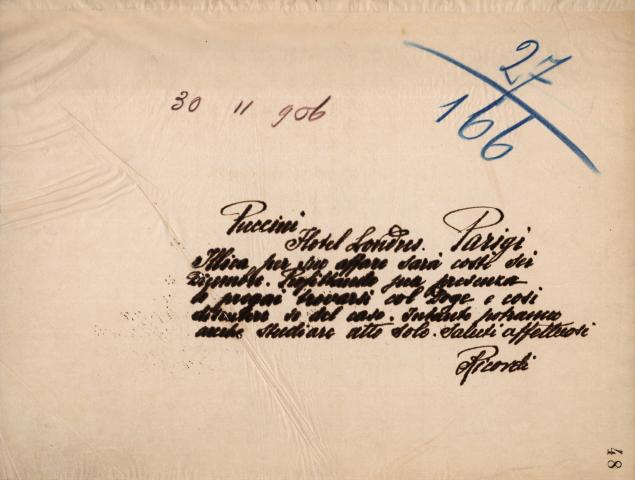 27
166
30 11 906
Puccini
Hotel Londres. Parigi
Illica per suo affare sarà costì sei
Dicembre. Profittando sua presenza
lo pregai trovarsi col Doge e così
se del caso. Intanto potranno
anche studiare atto solo. Saluti affettuosi
Ricordi
48